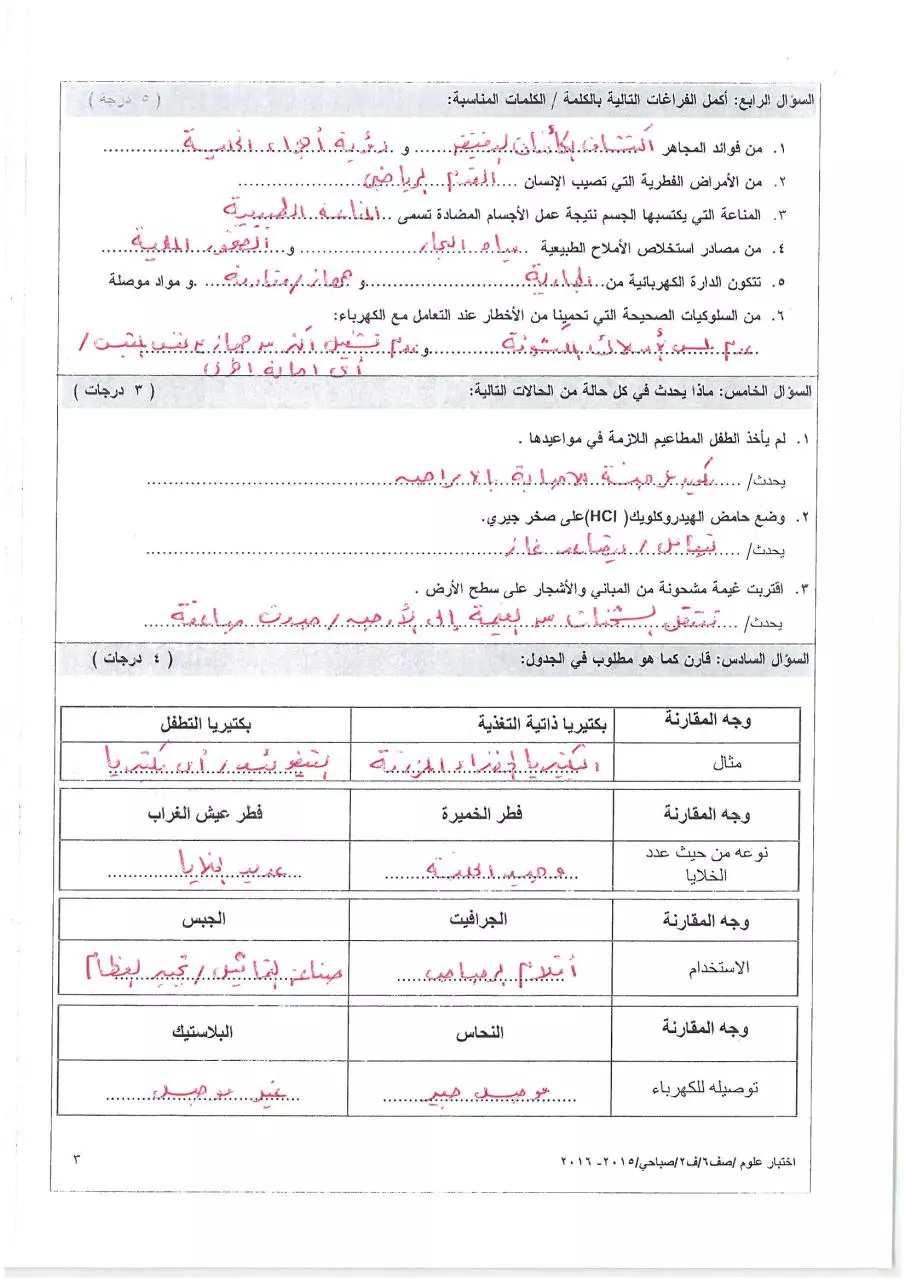 السؤال الرابع: أكمل الفراغات التالية بالكلمة / الكلمات المناسبة: ( ٥ درجة )
١. من فوائد المجاهر اكتشاف الكائنات الدقيقة و رؤية أجزاء الخلية
٢. من الأمراض الفطرية التي تصيب الإنسان القدم الرياضي
٣. المناعة التي يكتسبها الجسم نتيجة عمل الأجسام المضادة تسمى المناعة الطبيعية
٤. من مصادر استخلاص الأملاح الطبيعية مياه البحار و الصخور الملحية
٥. تتكون الدارة الكهربائية من البطارية و جهاز / مقاومة و مواد موصلة
٦. من السلوكيات الصحيحة التي تحمينا من الأخطار عند التعامل مع الكهرباء:
عدم لمس الأسلاك المكشوفة و عدم تشغيل أكثر من جهاز بنفس المقبس /
أي إجابة أخرى
السؤال الخامس: ماذا يحدث في كل حالة من الحالات التالية: ( ٣ درجات )
١. لم يأخذ الطفل المطاعيم اللازمة في مواعيدها .
يحدث/ يكون عرضة للإصابة بالأمراض
٢. وضع حامض الهيدروكلويك( HCl)على صخر جيري.
يحدث/ تفاعل / يتصاعد غاز
٣. اقتربت غيمة مشحونة من المباني والأشجار على سطح الأرض .
يحدث/ تنتقل الشحنات من الغيمة إلى الأرض / حدوث صاعقة
السؤال السادس: قارن كما هو مطلوب في الجدول: ( ٤ درجات )
وجه المقارنة بكتيريا ذاتية التغذية بكتيريا التطفل
مثال البكتيريا الخضراء المزرقة التيفوئيد / أي بكتيريا
وجه المقارنة فطر الخميرة فطر عيش الغراب
نوعه من حيث عدد الخلايا وحيد الخلية عديد الخلايا
وجه المقارنة الجرافيت الجبس
الاستخدام أقلام الرصاص صناعة التماثيل / تجبير العظام
وجه المقارنة النحاس البلاستيك
توصيله للكهرباء موصل جيد غير موصل
اختبار علوم /صف٦/ف٢/صباحي/٢٠١٥- ٢٠١٦ ٣